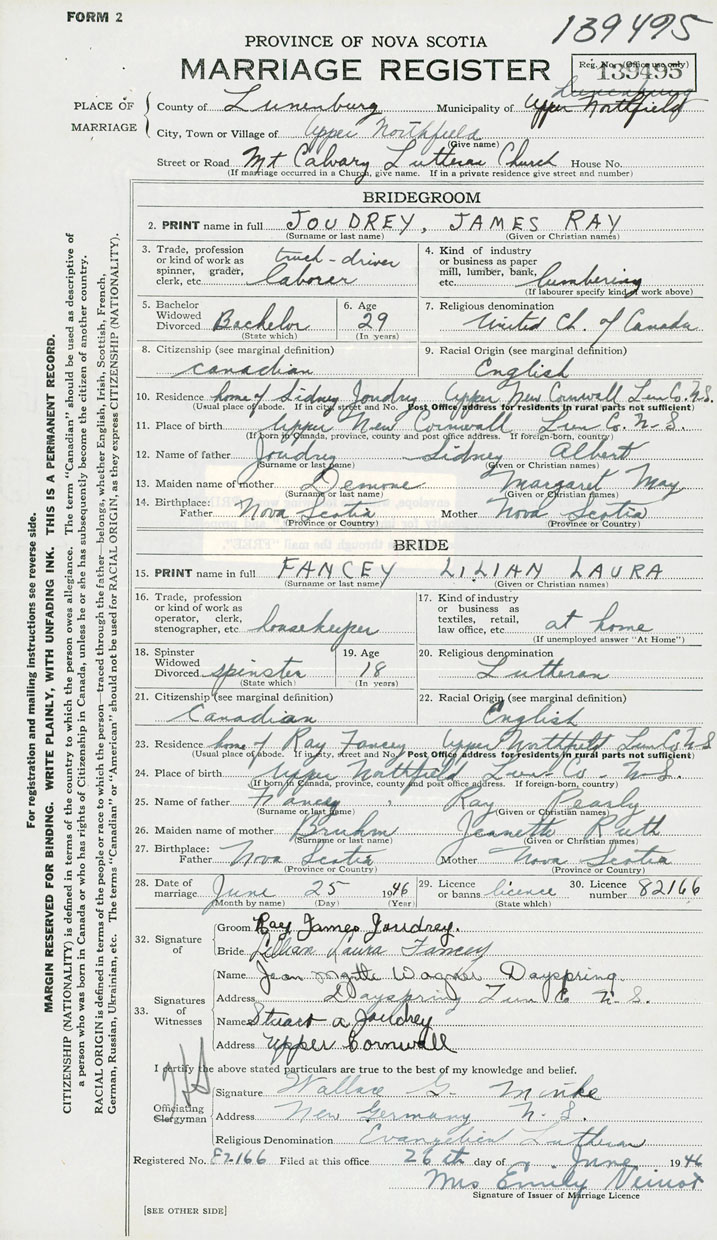 FORM 2
139495
PROVINCE OF NOVA SCOTIA
MARRIAGE REGISTER
Reg. No. (Office use only)
139495
PLACE OF MARRIAGE
County of Lunenburg Municipality of Lunenburg Upper Northfield
City, Town or Village of Upper Northfield
(Give name)
Street or Road Mt Calvary Lutheran Church House No.
(If marriage occurred in a Church, give name. If in a private residence give street and number)
BRIDEGROOM
2. PRINT name in full JOUDREY, JAMES RAY
(Surname or last name) (Given or Christian names)
3. Trade, profession or kind of work as spinner, grader, clerk, etc. truck-driver laborer
4. Kind of industry or business as paper mill, lumber, bank, etc. lumbering
(If labourer specify kind of work above)
5. Bachelor Widowed Divorced Bachelor
(State which)
6. Age 29
(In years)
7. Religious denomination United Ch. of Canada
8. Citizenship (see marginal definition) Canadian
9. Racial Origin (see marginal definition) English
10. Residence home of Sidney Joudrey Upper New Cornwall Lun Co. N.S.
(Usual place of abode. If in city, street and No. Post Office address for residents in rural parts not sufficient)
11. Place of birth Upper New Cornwall Lun Co. N.S.
(If born in Canada, province, county and post office address. If foreign-born, country)
12. Name of father Joudrey Sidney Albert
(Surname or last name) (Given or Christian names)
13. Maiden name of mother Demone Margaret May
(Surname or last name) (Given or Christian names)
14. Birthplace: Father Nova Scotia Mother Nova Scotia
(Province or Country) (Province or Country)
BRIDE
15. PRINT name in full FANCEY LILIAN LAURA
(Surname or last name) (Given or Christian names)
16. Trade, profession or kind of work as operator, clerk, stenographer, etc housekeeper
17. Kind of industry or business as textiles, retail, law office, etc. at home
(If unemployed answer "At Home")
18. Spinster Widowed Divorced spinster
(State which)
19. Age 18
(In years)
20. Religious denomination Lutheran
21. Citizenship (see marginal definition) Canadian
22. Racial Origin (see marginal definition) English
23. Residence home of Ray Fancey Upper Northfield Lun Co N S
(Usual place of abode. If in city, street and No. Post Office address for residents in rural parts not sufficient)
24. Place of birth Upper Northfield Lun- Co- N-S.
(If born in Canada, province, county and post office address. If foreign-born, country)
25. Name of father Fancey, Ray Pearly
(Surname or last name) (Given or Christian names)
26. Maiden name of mother Bruhm Jeanette Ruth
(Surname or last name) (Given or Christian names)
27. Birthplace: Father Nova Scotia Mother Nova Scotia
(Province or Country) (Province or Country)
28. Date of marriage June 25 1946
(Month by name) (Day) (Year)
29. Licence or banns licence
(State which)
30. Licence number 82166
32. Signature of
Groom Ray James Joudrey.
Bride Lillian Laura Fancey
33. Signatures of Witnesses
Name Jean Wagner Dayspring
Address Dayspring Lun C N.S.
Name Stuart a Joudrey
Address Upper Cornwall
I certify the above stated particulars are true to the best of my knowledge and belief.
Officiating Clergyman
Signature Wallace G. Minke
Address New Germany N.S.
Religious Denomination Evangelical Lutheran
Registered No. E7-166 Filed at this office 26th day of June 1946
Mrs Emily Veinot
Signature of Issuer of Marriage Licence
[SEE OTHER SIDE]
For registration and mailing instructions see reverse side.
MARGIN RESERVED FOR BINDING. WRITE PLAINLY, WITH UNFADING INK. THIS IS A PERMANENT RECORD.
CITIZENSHIP (NATIONALITY) is defined in terms of the country to which the person owes allegiance. The term "Canadian" should be used as descriptive of
a person who was born in Canada or who has rights of Citizenship in Canada, unless he or she has subsequently become the citizen of another country.
RACIAL ORIGIN is defined in terms of the people or race to which the person—traced through the father—belongs, whether English, Irish, Scottish, French,
German, Russian, Ukrainian, etc. The terms "Canadian" or "American" should not be used for RACIAL ORIGIN, as they express CITIZENSHIP (NATIONALITY).